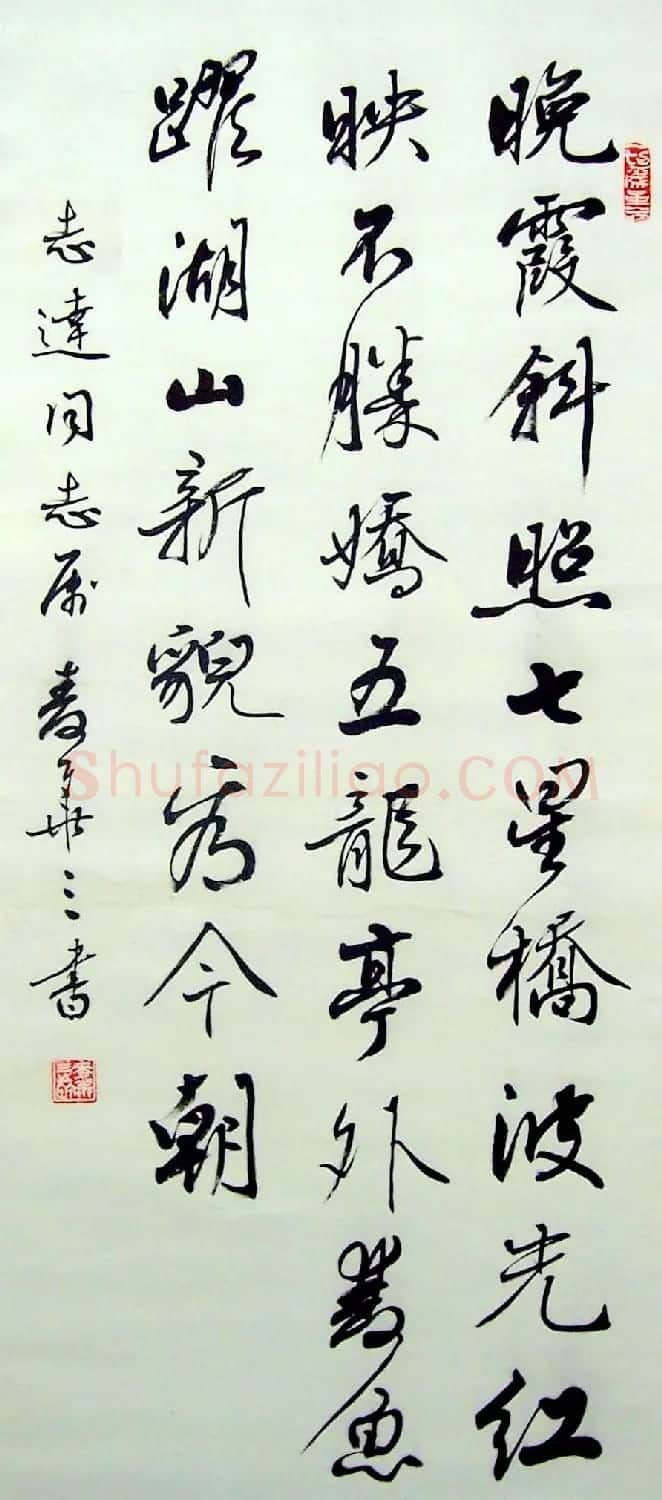 晚霞斜照七星橋波光紅
映不勝嬌五龍亭外雙魚
躍湖山新貌看今朝
志達同志属 麥華三書
Shufaziliao.COM